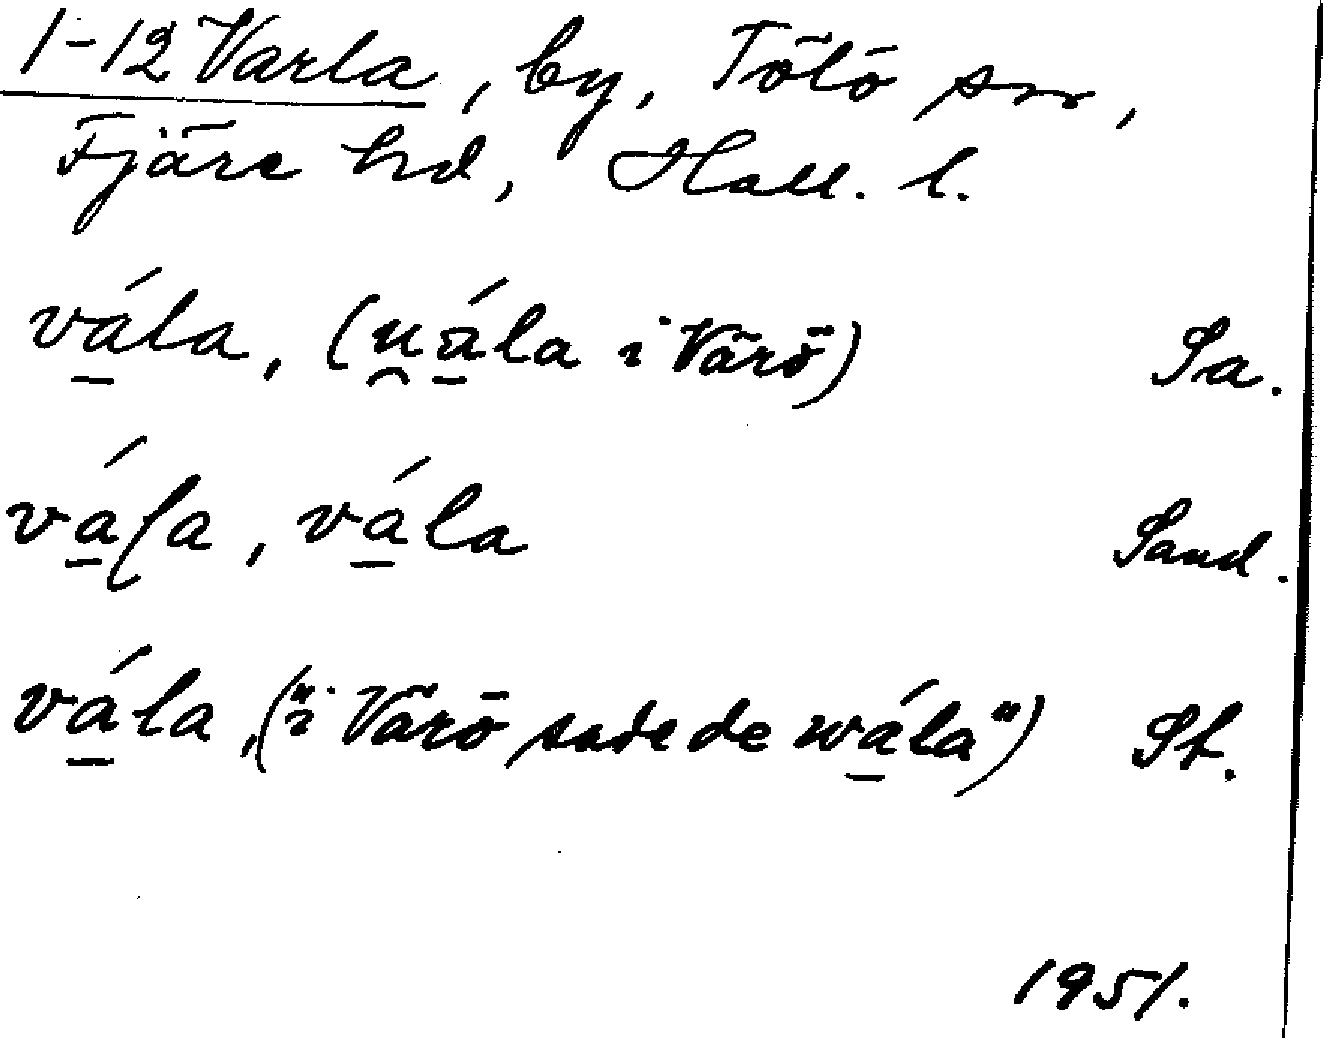 1-12 Varla, by, Tölö sn,
Fjäre hd, Hall. l.
vá̱la, (u̯á̱la i Värö) Sa.
vá̱ɭa, vá̱la Sand.
vá̱la, ("i Värö sade de wá̱la") St.
1951.